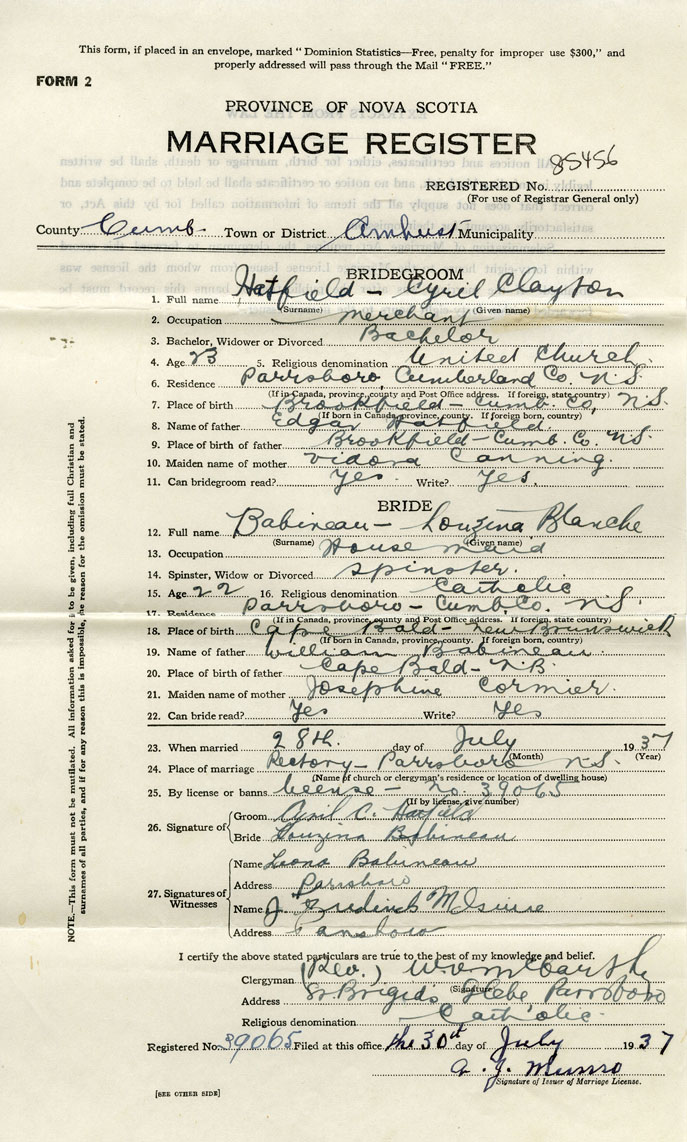 This form, if placed in an envelope, marked "Dominion Statistics—Free, penalty for improper use $300," and
properly addressed will pass through the Mail "FREE."
FORM 2
PROVINCE OF NOVA SCOTIA
MARRIAGE REGISTER
85456
REGISTERED No.
(For use of Registrar General only)
County Cumb. Town or District Amherst Municipality
BRIDEGROOM
1. Full name Hatfield - Cyril Clayton
(Surname) (Given name)
2. Occupation merchant
3. Bachelor, Widower or Divorced Bachelor
4. Age 23 5. Religious denomination United Church
6. Residence Parrsboro, Cumberland Co. N.S.
(If in Canada, province, county and Post Office address. If foreign, state country)
7. Place of birth Brookfield - Cumb. Co, N.S.
(If born in Canada, province, county. If foreign born, country)
8. Name of father Edgar Hatfield.
9. Place of birth of father Brookfield - Cumb. Co. N.S.
10. Maiden name of mother Vidora Canning.
11. Can bridegroom read? Yes. Write? Yes.
BRIDE
12. Full name Babineau - Louzina Blanche
(Surname) (Given name)
13. Occupation House maid
14. Spinster, Widow or Divorced Spinster.
15. Age 22 16. Religious denomination Catholic
17. Residence Parrsboro - Cumb. Co. N.S.
(If in Canada, province, county and Post Office address. If foreign, state country)
18. Place of birth Cape Bald - New Brunswick
(If born in Canada, province, county. If foreign born, country)
19. Name of father William Babineau.
20. Place of birth of father Cape Bald - N.B.
21. Maiden name of mother Josephine Cormier.
22. Can bride read? Yes Write? Yes
23. When married 28th. day of July 1937
(Month) (Year)
24. Place of marriage Rectory - Parrsboro N.S.
(Name of church or clergyman's residence or location of dwelling house)
25. By license or banns license - No. 39065
(If by license, give number)
26. Signature of Groom Cyril C. Hatfield
Bride Louzina Babineau
27. Signatures of Witnesses
Name Leona Babineau
Address Parrsboro
Name J. Frederick
Address Parrsboro
I certify the above stated particulars are true to the best of my knowledge and belief.
Clergyman (Rev.)
(Signature)
Address St. Brigid's Glebe Parrsboro
Religious denomination Catholic.
Registered No. 39065 Filed at this office the 30th day of July 1937
A. J. Munro
Signature of Issuer of Marriage License.
[SEE OTHER SIDE]
NOTE.—This form must not be mutilated. All information asked for is to be given, including full Christian and
surnames of all parties, and if for any reason this is impossible, the reason for the omission must be stated.